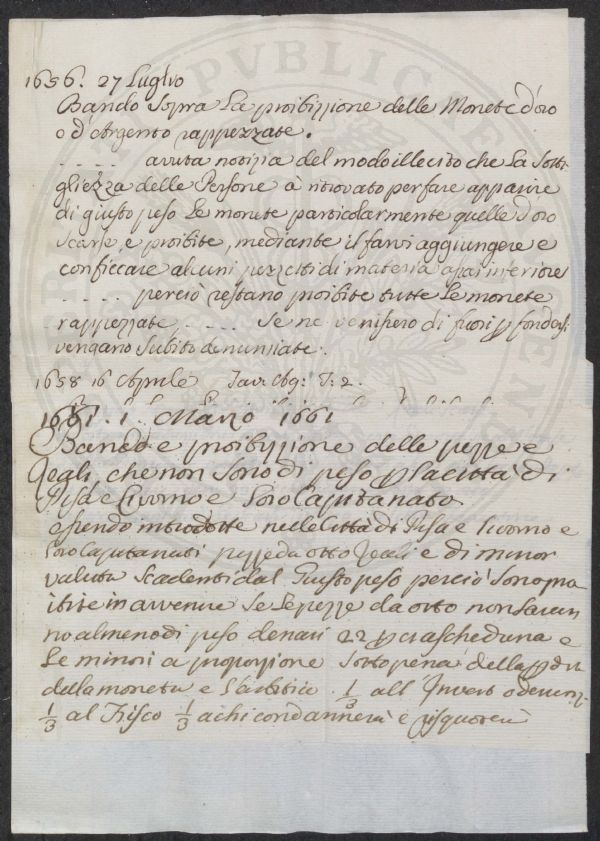 1656. 27 Luglio
Bando Sopra La proibizione delle Monete d'oro
o d'Argento rappezzate.
..... avuta notizia del modo illecito che La Sotti
gliezza delle Persone à ritrovato per fare apparire
di giusto peso Le monete particolarmente quelle d'oro
Scarse, e proibite, mediante il farvi aggiungere e
conficcare alcuni pezzetti di materia assai inferiore
..... perciò restano proibite tutte Le monete
rappezzate, .... Se ne venissero di fuori p fondersi
vengano Subito denunziate.
1658 16 Aprile
1661. 1. Marzo 1661
Bando e proibizione delle pezze e
Reali, che non Sono di peso p la città di
Pisa e Livorno e Loro Capitanato
essendo introdotte nelle Città di Pisa e Livorno e
Loro Capitanati pezze da otto Reali e di minor
valuta Scadenti dal Giusto peso perciò Sono proi
bite in avvenire Se Le pezze da otto non Saran
no almeno di peso denari 22 p ciascheduna e
Le minori a proporzione Sotto pena della p dita
della moneta e L'arbitrio. 1/3 all'
1/3 al Fisco 1/3 a chi condannerà e risquoterà
PVBLICAE